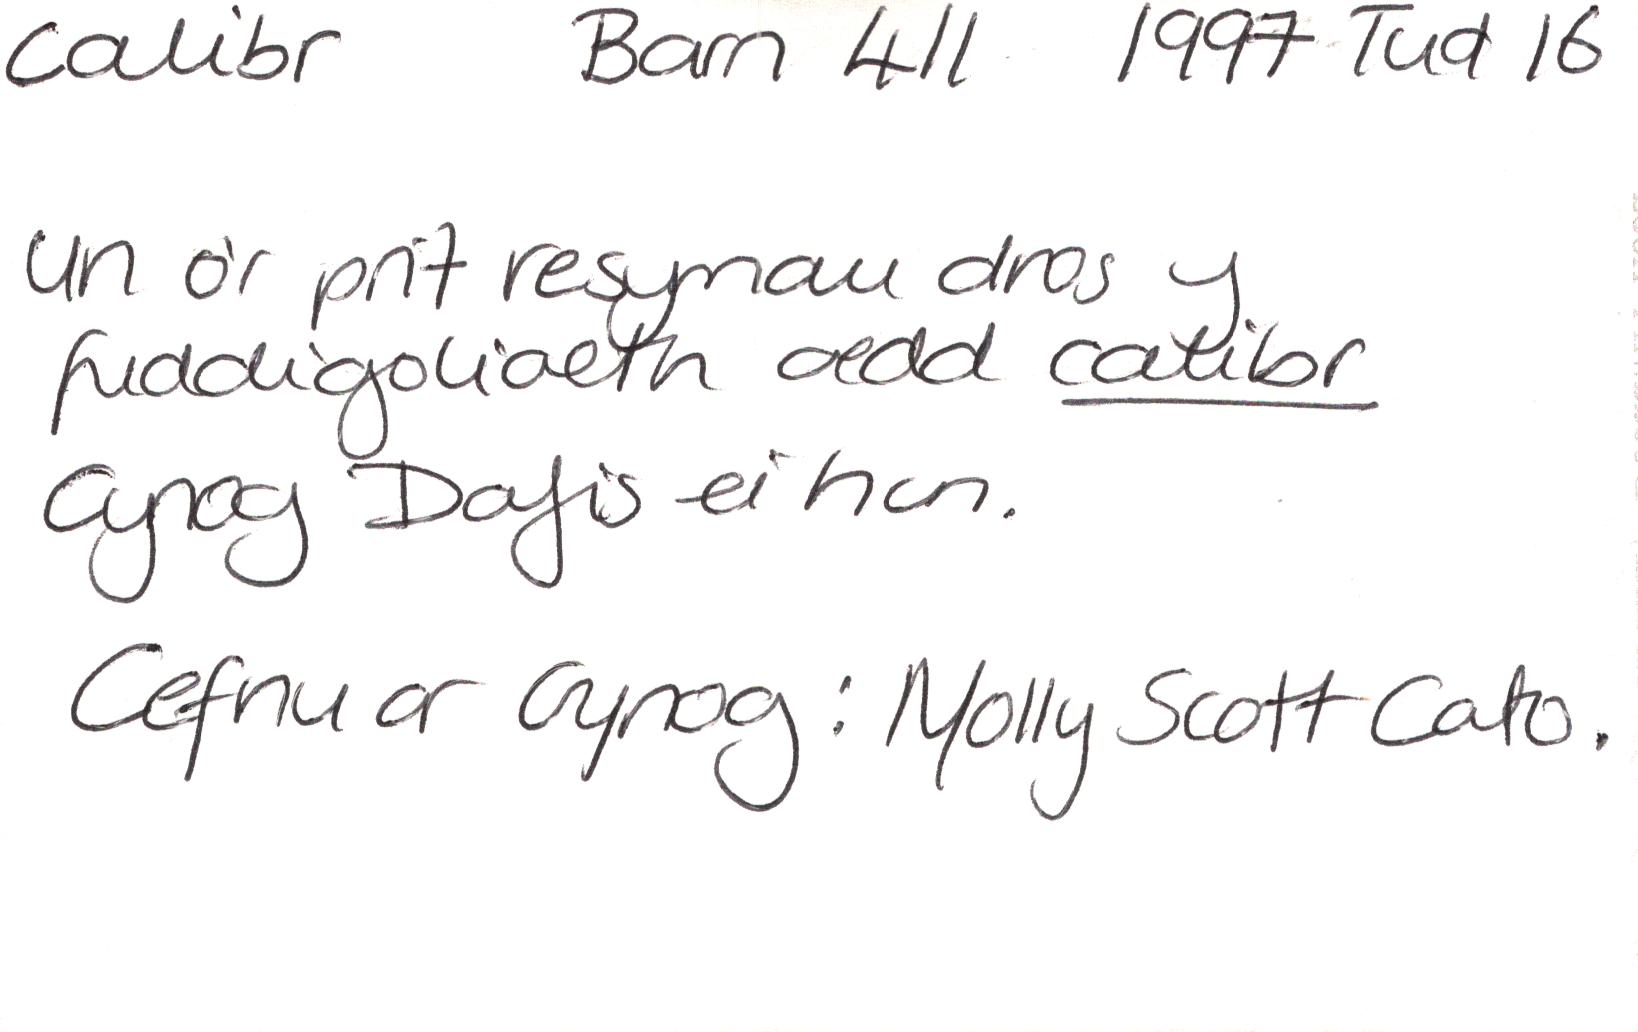 calibr Barn 411 1997 Tud 16
un o'r prif resymau dros y
fuddigoliaeth oedd calibr
Cynog Dafis ei hun.
Cefnu ar Cynog: Molly Scott Cato.